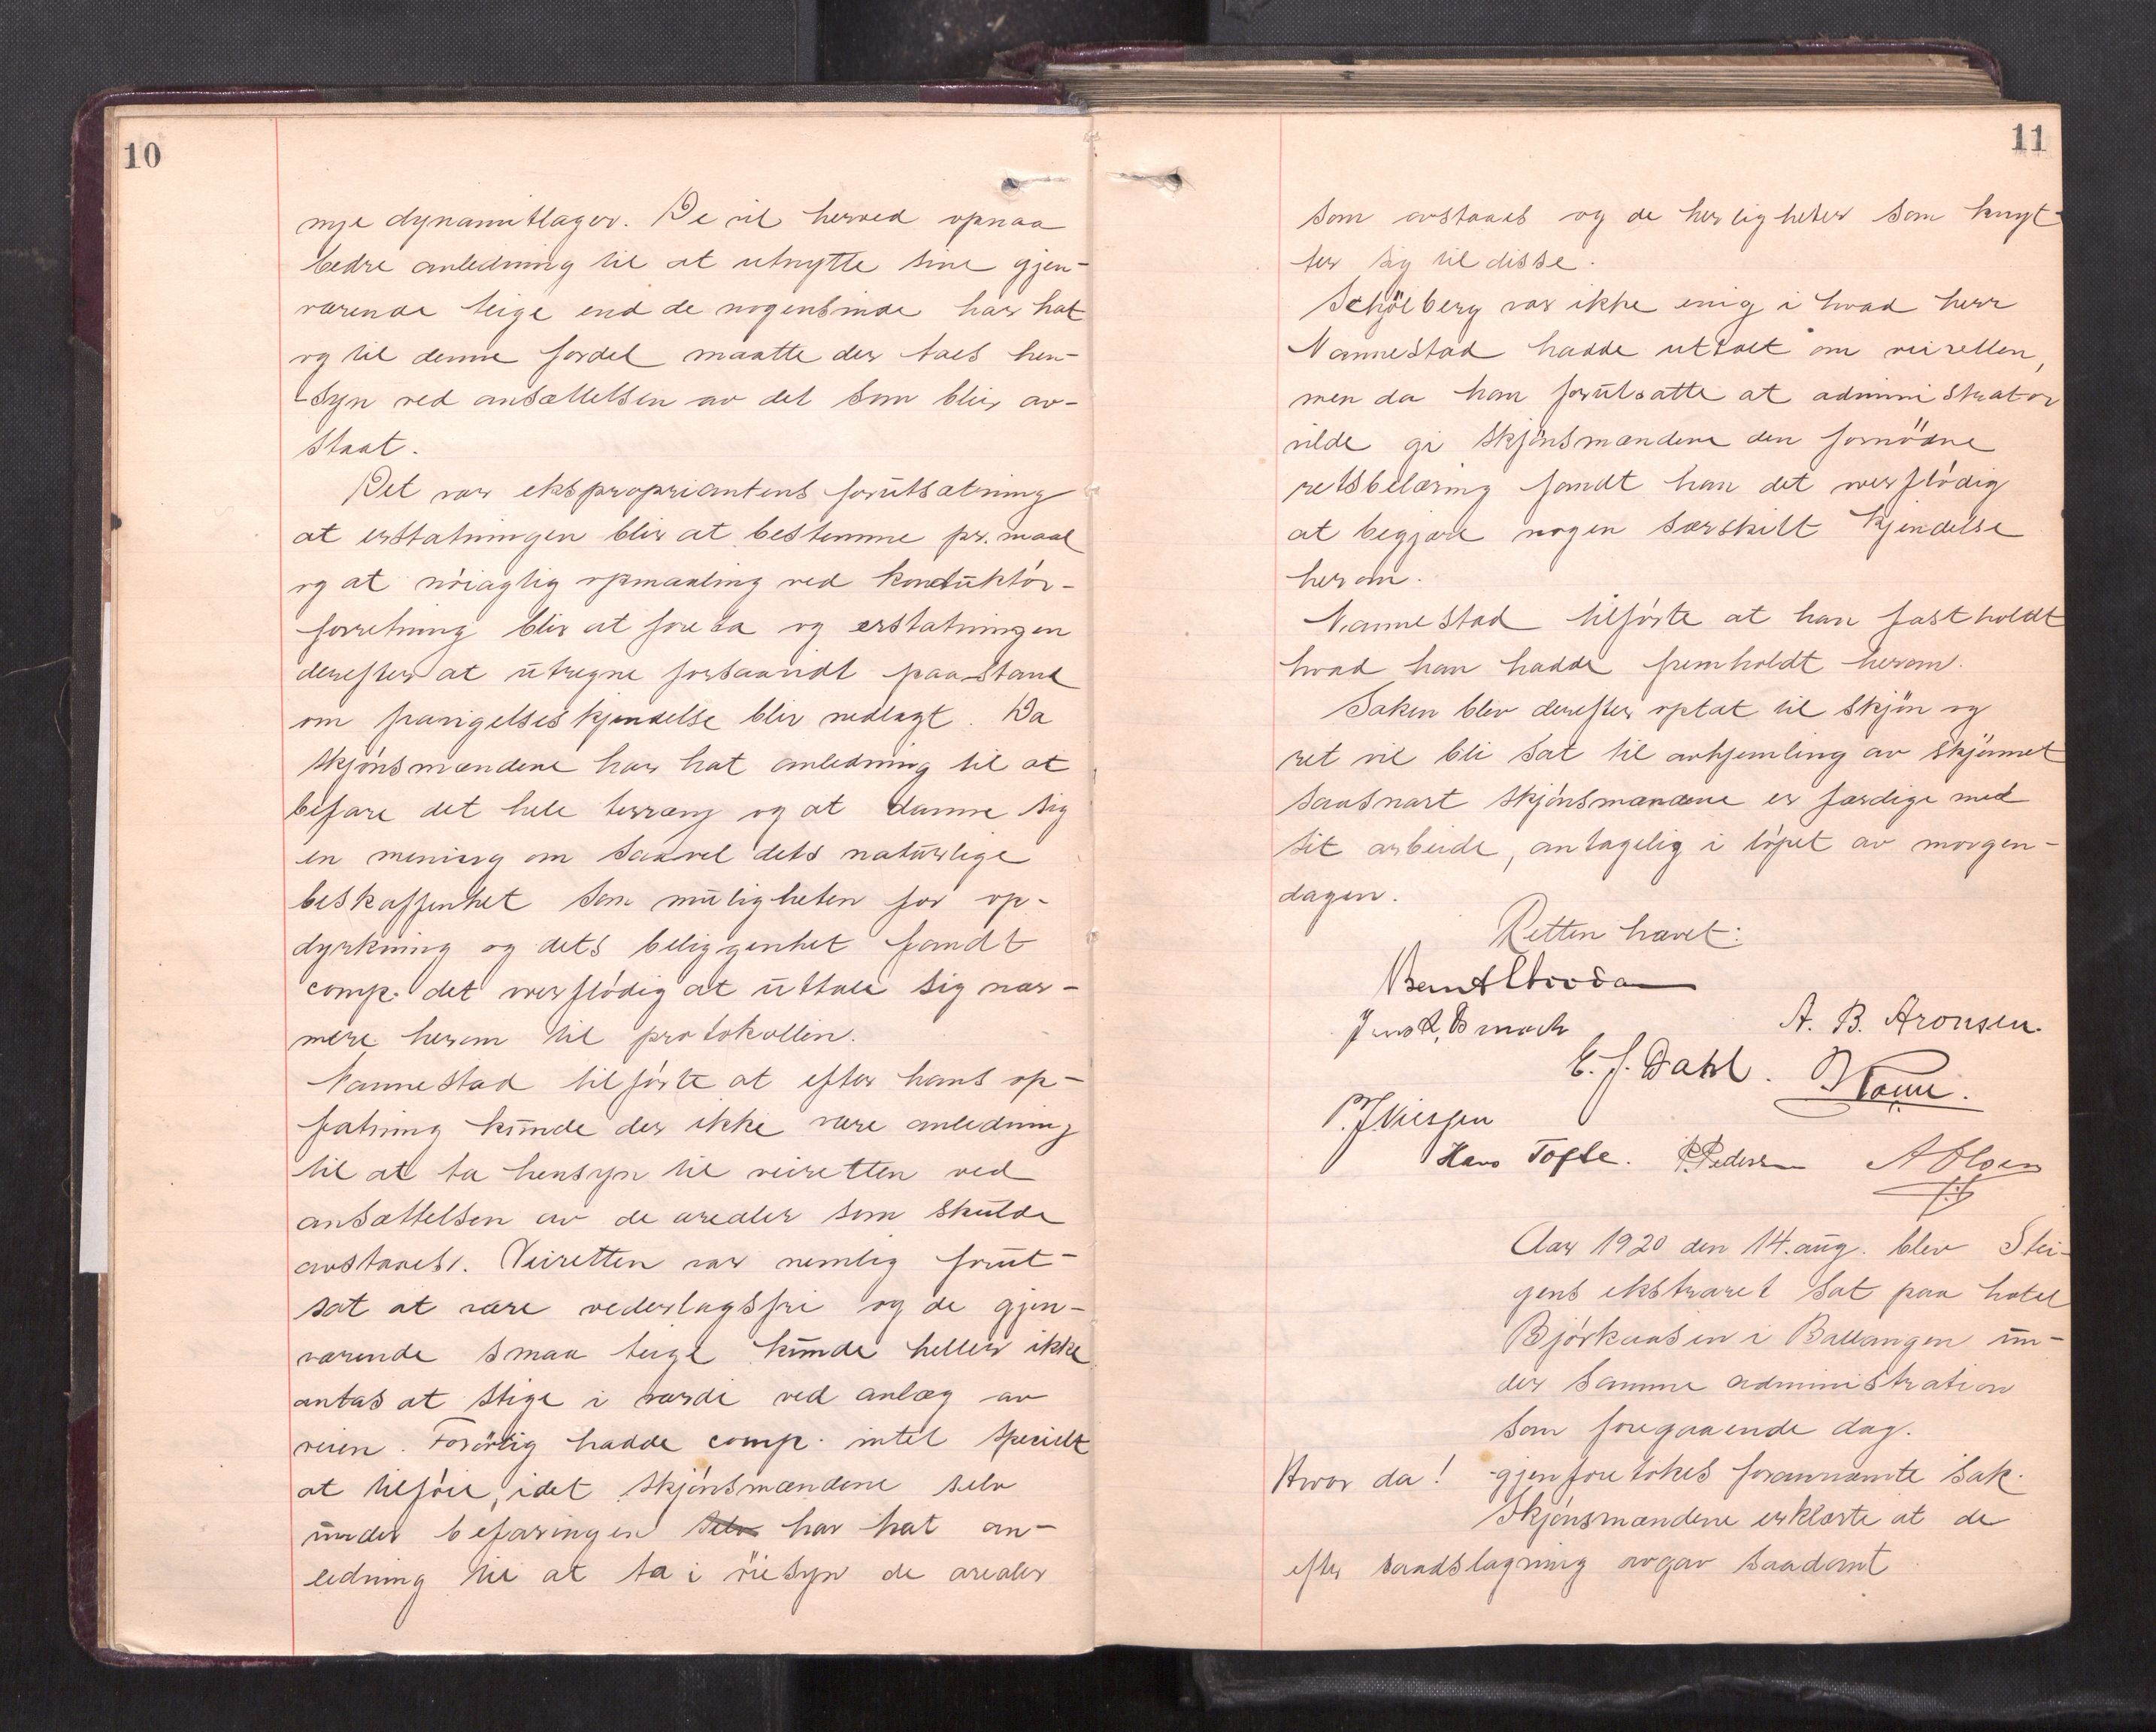 10
nye dynamitlager. De vil herved opnaa
bedre anledning til at utnytte sine gjen-
værende teige end de nogensinde har hat
og til denne fordel maatte der taes hen-
syn ved ansættelsen av det som blir av-
staat.
Det var ekspropriantens forutsætning
at erstatningen blir at bestemme pr. maal
og at nöiagtig opmaaling ved konduktör-
forretning blir at foreta og erstatningen
derefter at utregne forsaavidt paastand
om fravigelseskjendelse blir nedlagt. Da
skjönsmændene har hat anledning til at
befare det hele terræng og at danne sig
en mening om saavel dets naturlige
beskaffenhet som muligheten for op-
dyrkning og dets beliggenhet fandt
comp. det overflödig at uttale sig nær-
mere herom til protokollen.
Nannestad tilförte at efter hans op-
fatning kunde der ikke være anledning
til at ta hensyn til veiretten ved
ansættelsen av de arealer som skulde
avstaaes. Veiretten var nemlig forut-
sat at være vederlagsfri og de gjen-
værende smaa teige kunde heller ikke
antas at stige i værdi ved anlæg av
veien. Forövrig hadde comp. intet specielt
at tilföie, idet skjönsmændene selv
under befaringen selv har hat an-
ledning til at ta i öiesyn de arealer
11
som avstaaes og de herligheter som knyt-
ter sig til disse.
Schjölberg var ikke enig i hvad herr
Nannestad hadde uttalt om veiretten,
men da han forutsatte at administrator
vilde gi skjönsmændene den fornödne
retsbelæring fandt han det overflödig
at begjære nogen særskilt kjendelse
herom.
Nannestad tilförte at han fastholdt
hvad han hadde fremholdt herom.
Saken blev derefter optat til skjön og
ret vil bli sat til avhjemling av skjönnet
saasnart skjönsmændene er færdige med
sit arbeide, antagelig i löpet av morgen-
dagen.
Retten hævet:
A. B. Aronsen.
E. J. Dahl.
Hans Tofte. P. Pedersen A Olsen
Aar 1920 den 14. aug. blev Stei-
gens ekstraret sat paa hotel
Björkaasen i Ballangen un-
der samme administration
som foregaaende dag.
Hvor da! gjenforetokes forannævnte sak.
Skjönsmændene erklærte at de
efter raadslagning avgav saadant